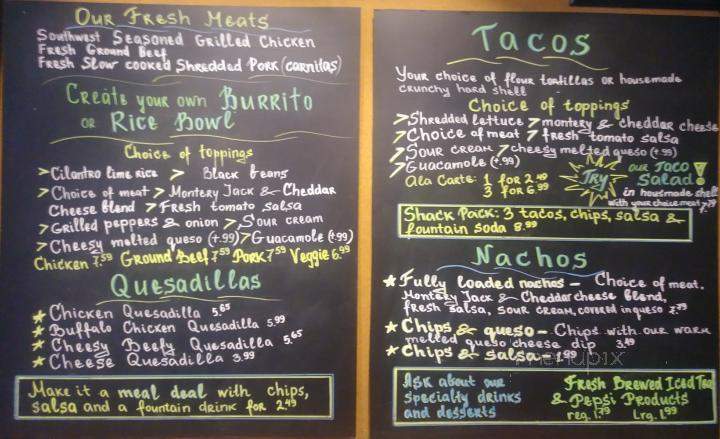 Our Fresh Meats
Southwest Seasoned Grilled Chicken
Fresh Ground Beef
Fresh Slow cooked Shredded Pork (carnitas)
Create your own Burrito
or Rice Bowl
Choice of toppings
> Cilantro lime rice > Black beans
> Choice of meat > Montery Jack & Cheddar
Cheese blend > Fresh tomato salsa
> Grilled peppers & onion > Sour cream
> Cheesy melted queso (+.99) > Guacamole (+.99)
Chicken 7.59 Ground Beef 7.59 Pork 7.59 Veggie 6.99
Quesadillas
★ Chicken Quesadilla 5.65
★ Buffalo Chicken Quesadilla 5.99
★ Cheesy Beefy Quesadilla 5.65
★ Cheese Quesadilla 3.99
Make it a meal deal with chips,
salsa and a fountain drink for 2.49
Tacos
Your choice of flour tortillas or housemade
crunchy hard shell
Choice of toppings
> Shredded lettuce > montery & cheddar cheese
> Choice of meat > fresh tomato salsa
> Sour cream > cheesy melted queso (+.99)
> Guacamole (+.99)
Ala Carte: 1 for 2.49
3 for 6.99
Try our Taco
Salad!
in housemade shell
with your choice meat 7.79
Shack Pack: 3 tacos, chips, salsa &
fountain soda 8.99
Nachos
★ Fully loaded nachos - Choice of meat.
Montery Jack & Cheddar cheese blend,
fresh salsa, sour cream, covered in queso 7.79
★ Chips & queso - Chips with our warm
melted queso cheese dip 3.49
★ Chips & salsa - 1.99
menupix
Ask about our
specialty drinks
and desserts
Fresh Brewed Iced Tea
& Pepsi Products
reg. 1.79 Lrg. 1.99